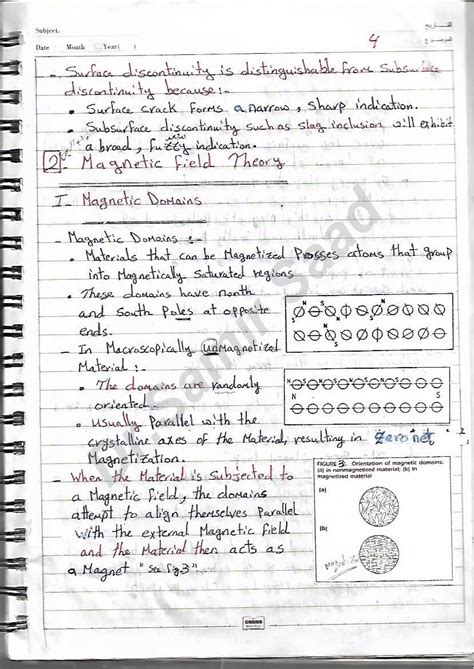 Subject.
Date Month Year( )
التاريخ
الموضوع
4
- Surface discontinuity is distinguishable from Subsurface
discontinuity because :-
• Surface crack forms a narrow, sharp indication.
• Subsurface discontinuity such as slag inclusion will exhibit
a broad, fuzzy indication.
2 - Magnetic Field Theory
I - Magnetic Domains
- Magnetic Domains :-
• Materials that can be Magnetized Prosses atoms that group
into Magnetically Saturated regions
• These domains have north
and South Poles at opposite
ends.
- In Macroscopically unmagnetized
Material :-
• The domains are randomly
oriented
• Usually Parallel with the
crystalline axes of the Material, resulting in "Zero net"
Magnetization.
- When the Material is Subjected to
a Magnetic field, the domains
attempt to align themselves Parallel
with the external Magnetic field
and the Material then acts as
a Magnet "See fig 3"
FIGURE 3. Orientation of magnetic domains:
(a) in nonmagnetized material; (b) in
magnetized material
(a)
(b)
Samir Saad